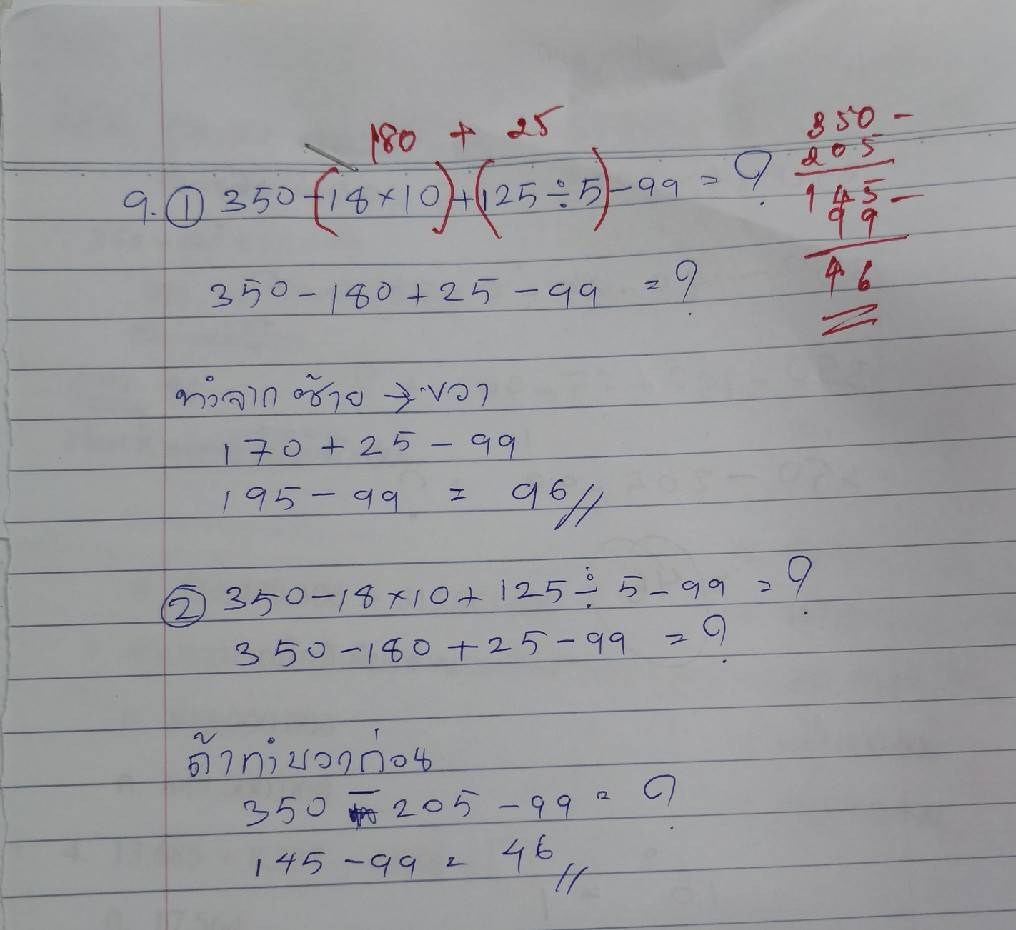 180 + 25
9. ① 350-(18×10)+(125÷5)-99 = ?
350 -
205
145 -
99
46
350-180+25-99 = ?
ทำจาก ซ้าย → ขวา
170+25-99
195-99 = 96//
② 350-18×10+125÷5-99 = ?
350-180+25-99 = ?
ถ้าทำบวกก่อน
350 - 205 - 99 = ?
145-99 = 46//